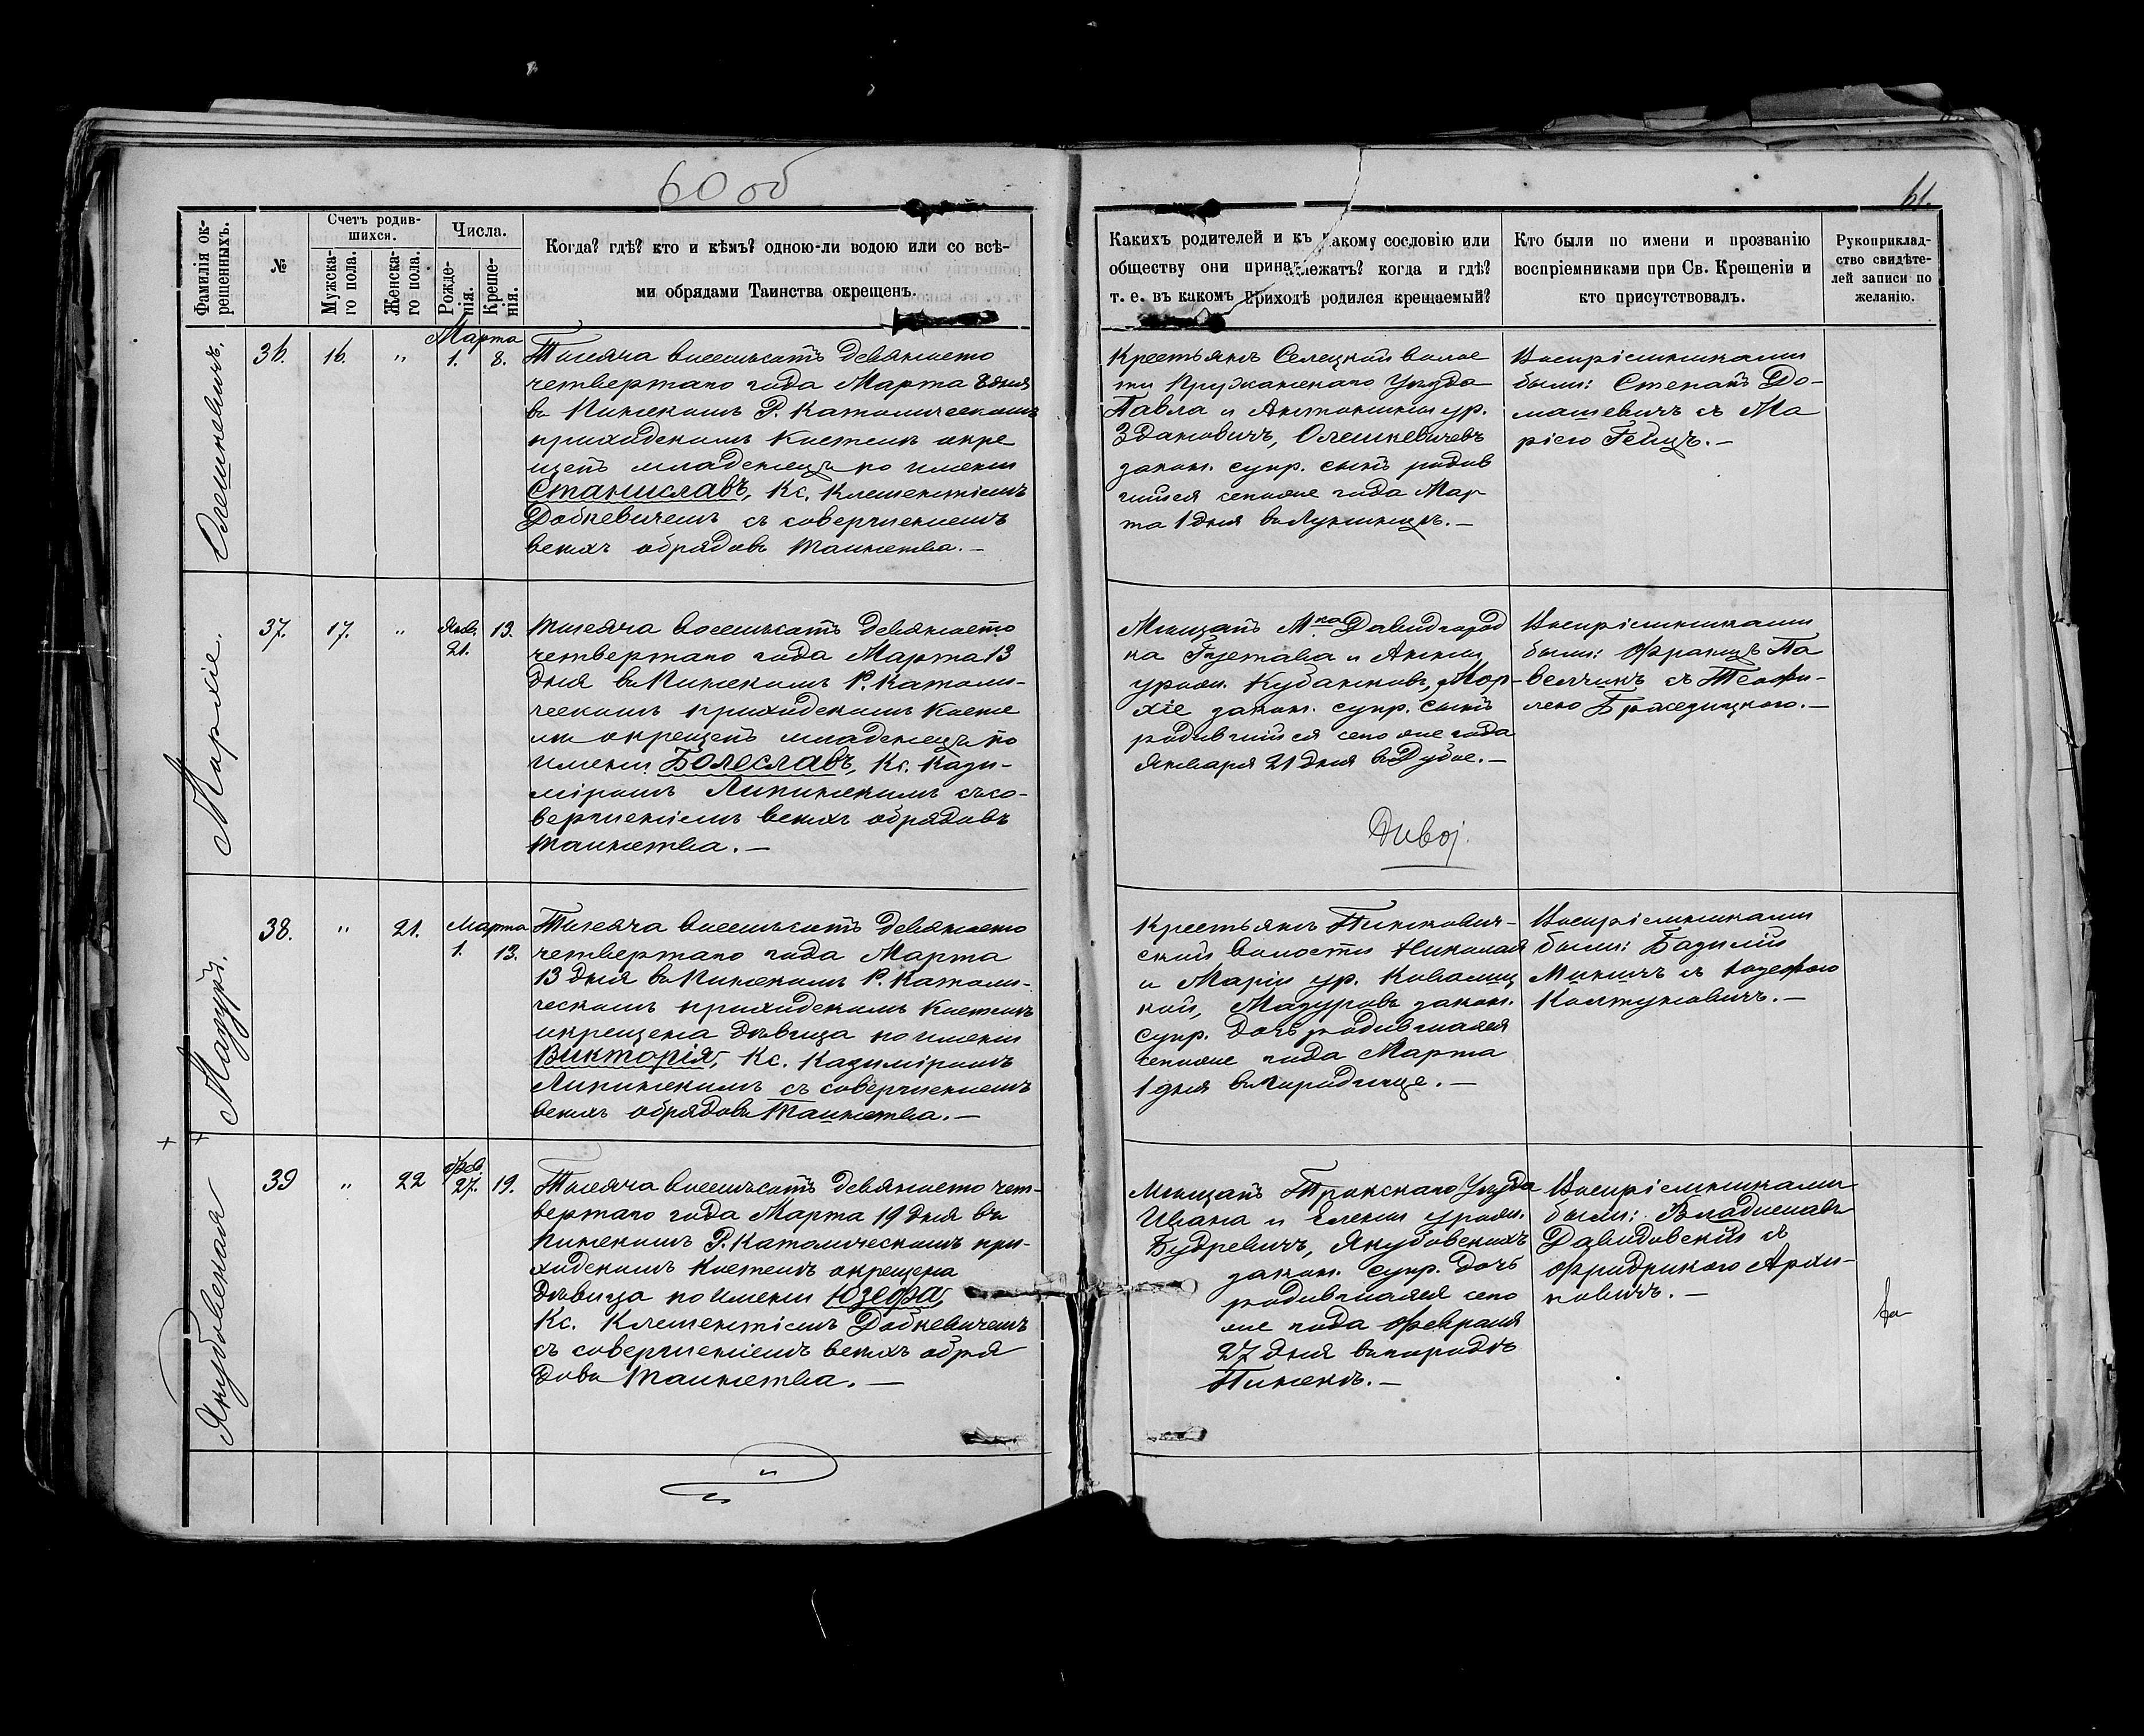 60 об
61.
Фамилія ок-
рещенныхъ.
№
Счетъ родив-
шихся.
Мужска-
го пола.
Женска-
го пола.
Числа.
Рожде-
нія.
Креще-
нія.
Когда? гдѣ? кто и кѣмъ? одною-ли водою или со всѣ-
ми обрядами Таинства окрещенъ.
Какихъ родителей и къ какому сословію или
обществу они принадлежатъ? когда и гдѣ?
т. е. въ какомъ приходѣ родился крещаемый?
Кто были по имени и прозванію
воспріемниками при Св. Крещеніи и
кто присутствовалъ.
Рукоприклад-
ство свидѣте-
лей записи по
желанію.
Олешкевичъ.
36.
16.
"
Марта
1.
8.
Тысяча восемьсотъ девяносто
четвертаго года Марта 8 дня
въ Пинскомъ Р. Католическомъ
приходскомъ костелѣ окре
щенъ младенецъ по имени
Станиславъ, Кс. Клементіемъ
Добкевичемъ съ совершеніемъ
всѣхъ обрядовъ Таинства. —
Крестьянъ Селецкой волос
ти Пружанскаго Уѣзда
Павла и Антонины ур.
Здановичъ, Олешкевичевъ
закон. супр. сынъ родив
шійся сегоже года Мар
та 1 дня въ Лунинцѣ. —
Воспріемниками
были: Степанъ До-
машевичъ съ Ма
ріею Гейцъ. —
Морхіе.
37.
17.
"
Янв.
21.
13.
Тысяча восемьсотъ девяносто
четвертаго года Марта 13
дня въ Пинскомъ Р. Католи-
ческомъ приходскомъ косте
лѣ окрещенъ младенецъ по
имени Болеславъ, Кс. Кази-
міромъ Липинскимъ съ со-
вершеніемъ всѣхъ обрядовъ
Таинства. —
Мѣщанъ М-ка Давидгород
ка Густава и Анны
урожн. Кубанковъ, Мор-
хіе закон. супр. сынъ
родившійся сего же года
Января 21 дня въ Дубое. —
Duboj.
Воспріемниками
были: Францъ Па
велчикъ съ Теофи-
лею Бржезицкою. —
Мазуръ.
38.
"
21.
Марта
1.
13.
Тысяча восемьсотъ девяносто
четвертаго года Марта
13 дня въ Пинскомъ Р. Католи-
ческомъ приходскомъ костелѣ
окрещена дѣвица по имени
Викторія, Кс. Казиміромъ
Липинскимъ съ совершеніемъ
всѣхъ обрядовъ Таинства. —
Крестьянъ Пинкович-
ской волости Николая
и Маріи ур. Ковалиц
кой, Мазуровъ закон.
супр. дочь родившаяся
сегоже года Марта
1 дня въ Городище. —
Воспріемниками
были: Базилій
Микичъ съ Юзефою
Колтуновичъ. —
Якубовская
39
"
22
Фев.
27.
19.
Тысяча восемьсотъ девяносто чет-
вертаго года Марта 19 дня въ
Пинскомъ Р. Католическомъ при-
ходскомъ костелѣ окрещена
дѣвица по имени Юзефа,
Кс. Клементіемъ Добкевичемъ
съ совершеніемъ всѣхъ обря
довъ Таинства. —
Мѣщанъ Трокскаго Уѣзда
Ивана и Елены урожн.
Будревичъ, Якубовскихъ
закон. супр. дочь
родившаяся сего
же года Февраля
27 дня въ городѣ
Пинскѣ. —
Воспріемниками
были: Владиславъ
Давидовскій съ
Фридрикою Архи-
повичъ. —